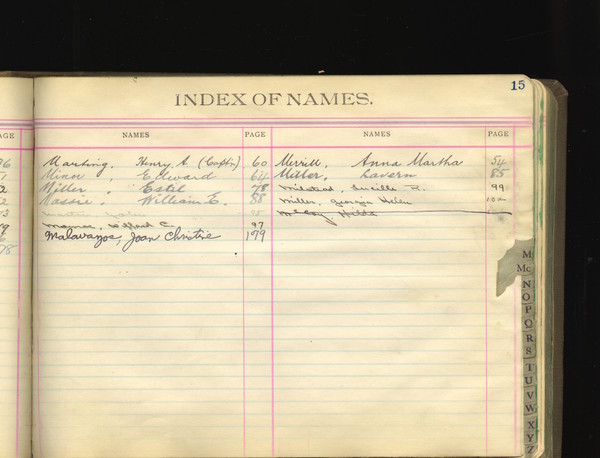 15
INDEX OF NAMES.
AGE NAMES PAGE NAMES PAGE
Marting, Henry A. (Capt.) 60 Merrill, Anna Martha 54
Minor, Edward 64 Miller, Lavern 85
Miller, Estil 78 Milstead, Lucille R. 99
Massie, William E. 88 Miller, Georgia Helen
McCoy, Hilda
97
Malavazos, Joan Christie 179
M
Mc
N
O
P
Q
R
S
T
U
V
W
X
Y
Z